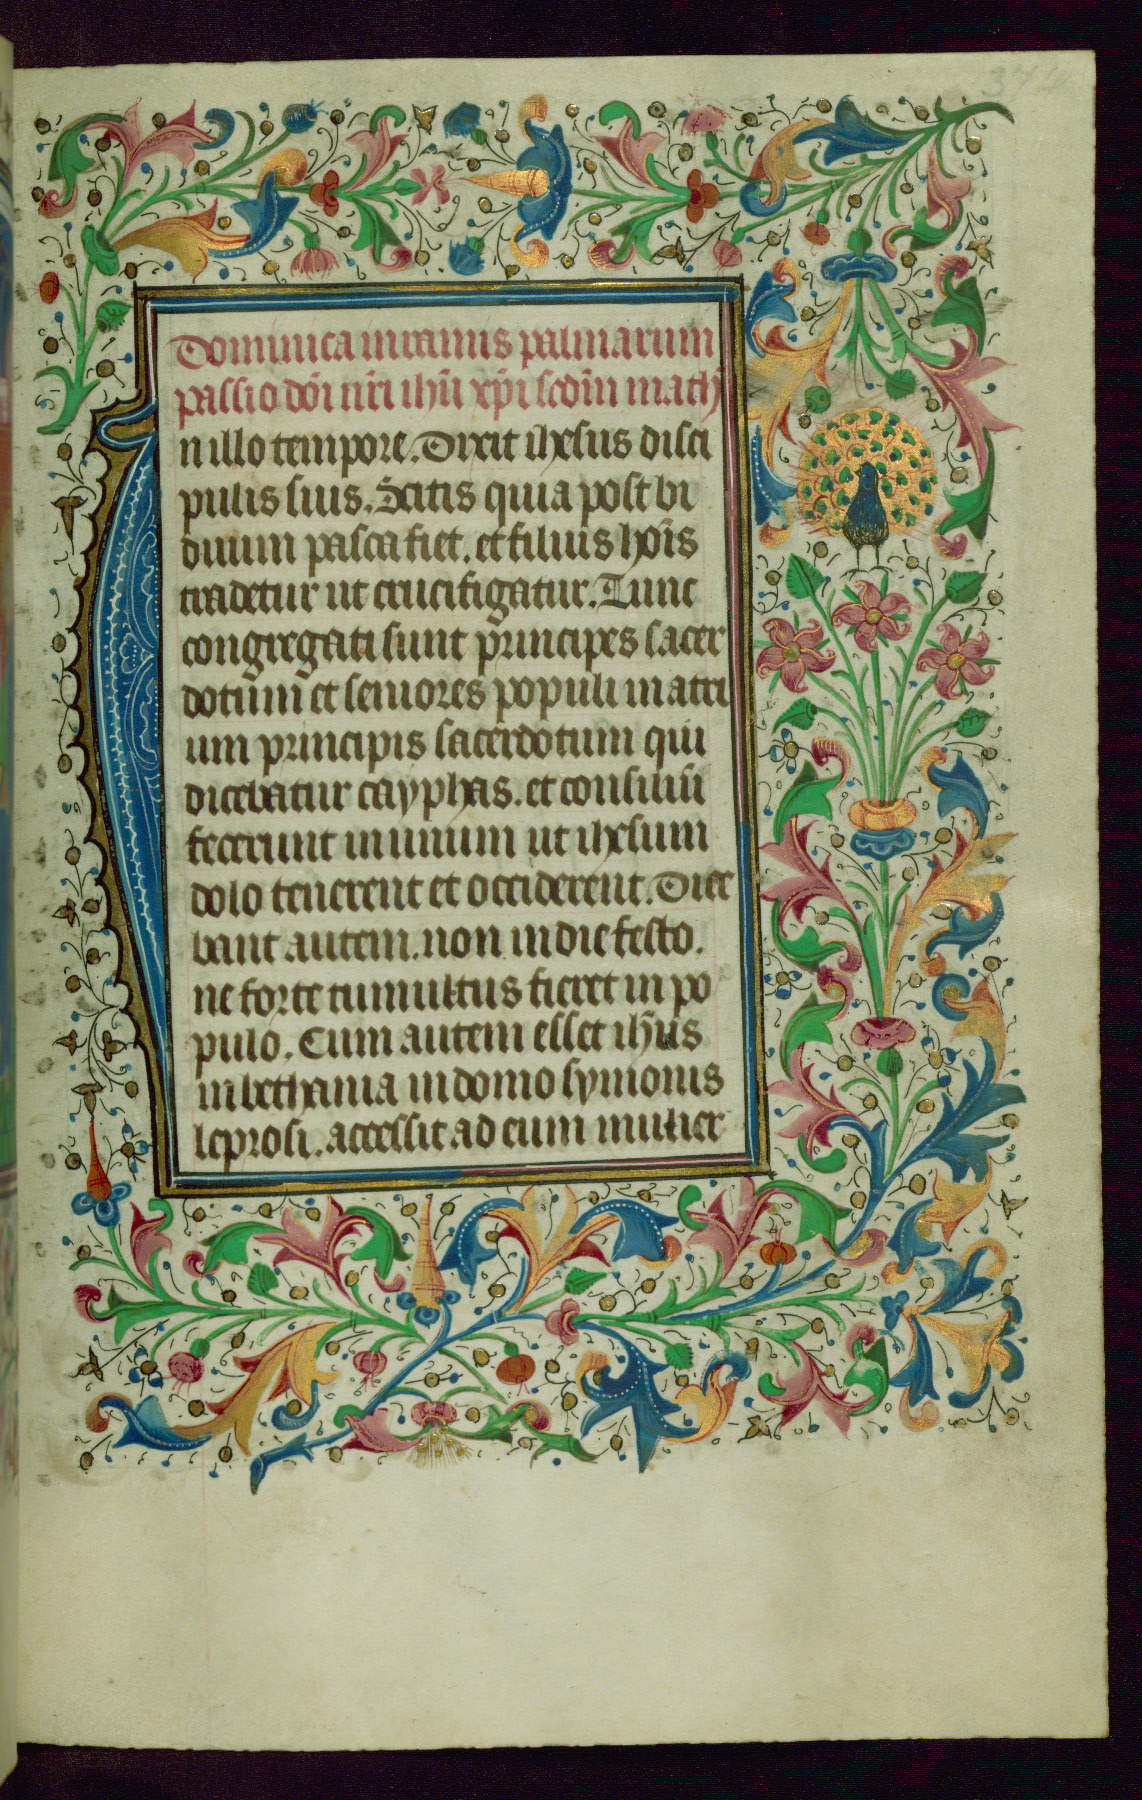 Dominica in ramis palmarum
passio dn̄i nr̄i ihū xp̄i scdm̄ math̄
In illo tempore. Dixit ihesus disci
pulis suis. Scitis quia post bi
duum pasca fiet. et filius hoīs
tradetur ut crucifigatur. Tunc
congregati sunt principes sacer
dotum et seniores populi in atri
um principis sacerdotum qui
dicebatur cayphas. et consiliū
fecerunt in unum ut ihesum
dolo tenerent et occiderent. Dice
bant autem. non in die festo.
ne forte tumultus fieret in po
pulo. Cum autem esset ihūs
in bethania in domo symonis
leprosi. accessit ad eum mulier